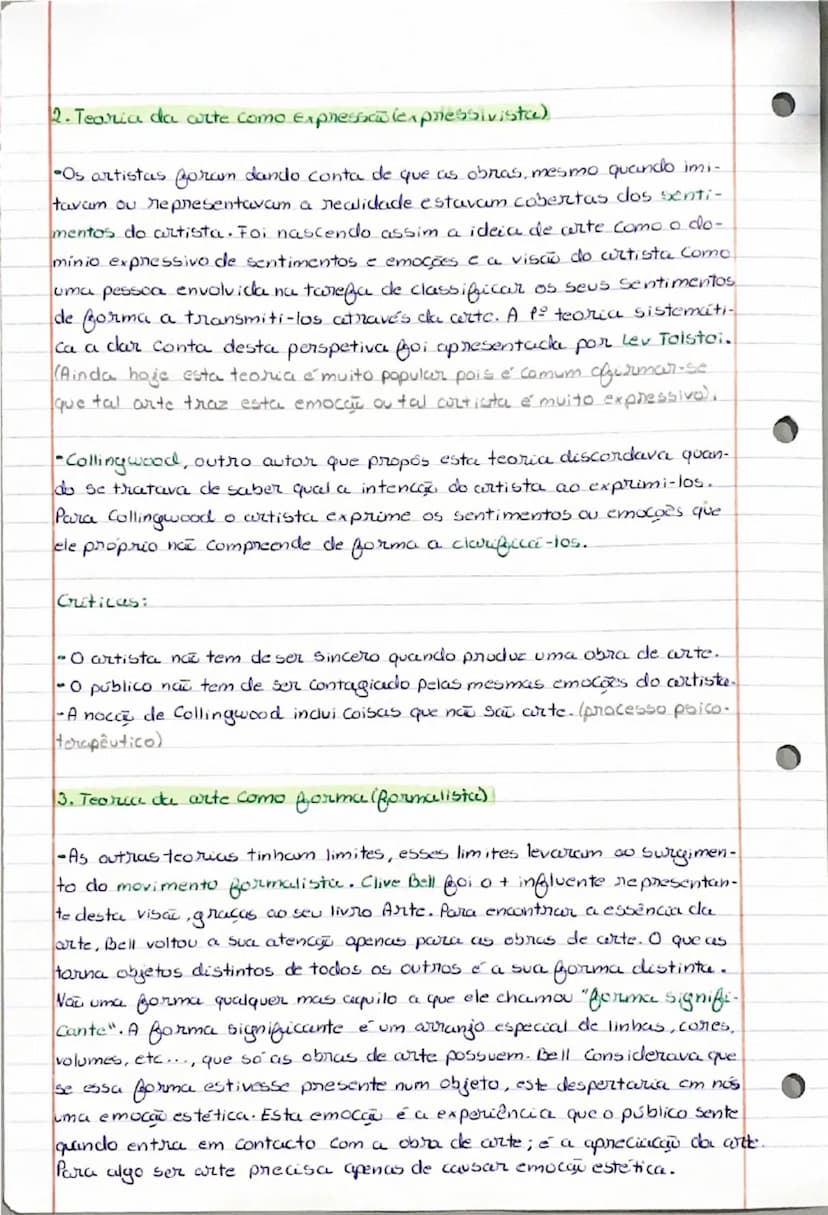 2. Teoria da arte como expressão (expressivista)
-Os artistas foram dando conta de que as obras, mesmo quando imi-
tavam ou representavam a realidade estavam cobertas dos senti-
mentos do artista. Foi nascendo assim a ideia de arte como o do-
mínio expressivo de sentimentos e emoções e a visão do artista como
uma pessoa envolvida na tarefa de classificar os seus sentimentos
de forma a transmiti-los através da arte. A 1ª teoria sistemáti-
ca a dar conta desta perspetiva foi apresentada por Lev Tolstoi.
(Ainda hoje esta teoria é muito popular pois é comum afirmar-se
que tal arte traz esta emoção ou tal artista é muito expressivo).
-Collingwood, outro autor que propôs esta teoria discordava quan-
do se tratava de saber qual a intenção do artista ao exprimi-los.
Para Collingwood o artista exprime os sentimentos ou emoções que
ele próprio não compreende de forma a clarificá-los.
Críticas:
-O artista não tem de ser sincero quando produz uma obra de arte.
-O público não tem de ser contagiado pelas mesmas emoções do artista.
-A noção de Collingwood inclui coisas que não são arte. (processo psico-
terapêutico)
3. Teoria da arte como forma (formalista)
-As outras teorias tinham limites, esses limites levaram ao surgimen-
to do movimento formalista. Clive Bell foi o + influente representan-
te desta visão, graças ao seu livro Arte. Para encontrar a essência da
arte, Bell voltou a sua atenção apenas para as obras de arte. O que as
torna objetos distintos de todos os outros é a sua forma distinta.
Não uma forma qualquer mas aquilo a que ele chamou "forma signifi-
cante". A forma significante é um arranjo especial de linhas, cores,
volumes, etc..., que só as obras de arte possuem. Bell considerava que
se essa forma estivesse presente num objeto, este despertaria em nós
uma emoção estética. Esta emoção é a experiência que o público sente
quando entra em contacto com a obra de arte; é a apreciação da arte.
Para algo ser arte precisa apenas de causar emoção estética.